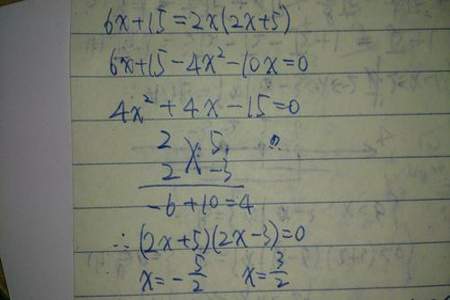 6x+15=2x(2x+5)
6x+15-4x²-10x=0
4x²+4x-15=0
2 5
2 -3
-6+10=4
∴(2x+5)(2x-3)=0
x=-5/2 x=3/2